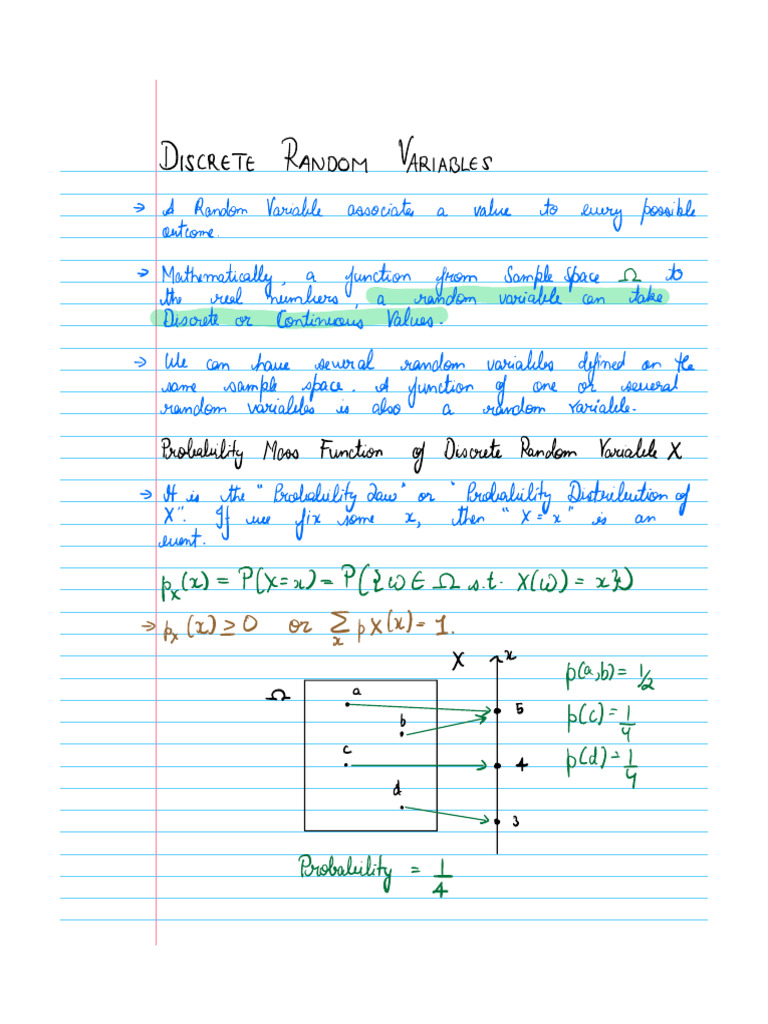 DISCRETE RANDOM VARIABLES
→ A Random Variable associates a value to every possible
outcome.
→ Mathematically, a function from Sample Space Ω to
the real numbers, a random variable can take
Discrete or Continuous Values.
→ We can have several random variables defined on the
same sample space. A function of one or several
random variables is also a random variable.
Probability Mass Function of Discrete Random Variable X
→ It is the "Probability Law" or "Probability Distribution of
X". If we fix some x, then "X = x" is an
event.
p_X(x) = P(X=x) = P({ω ∈ Ω s.t. X(ω) = x})
→ p_X(x) ≥ 0 or Σ_x pX(x) = 1.
X x
p(a,b) = 1/2
Ω a
5
b
p(c) = 1/4
c
4
p(d) = 1/4
d
3
Probability = 1/4